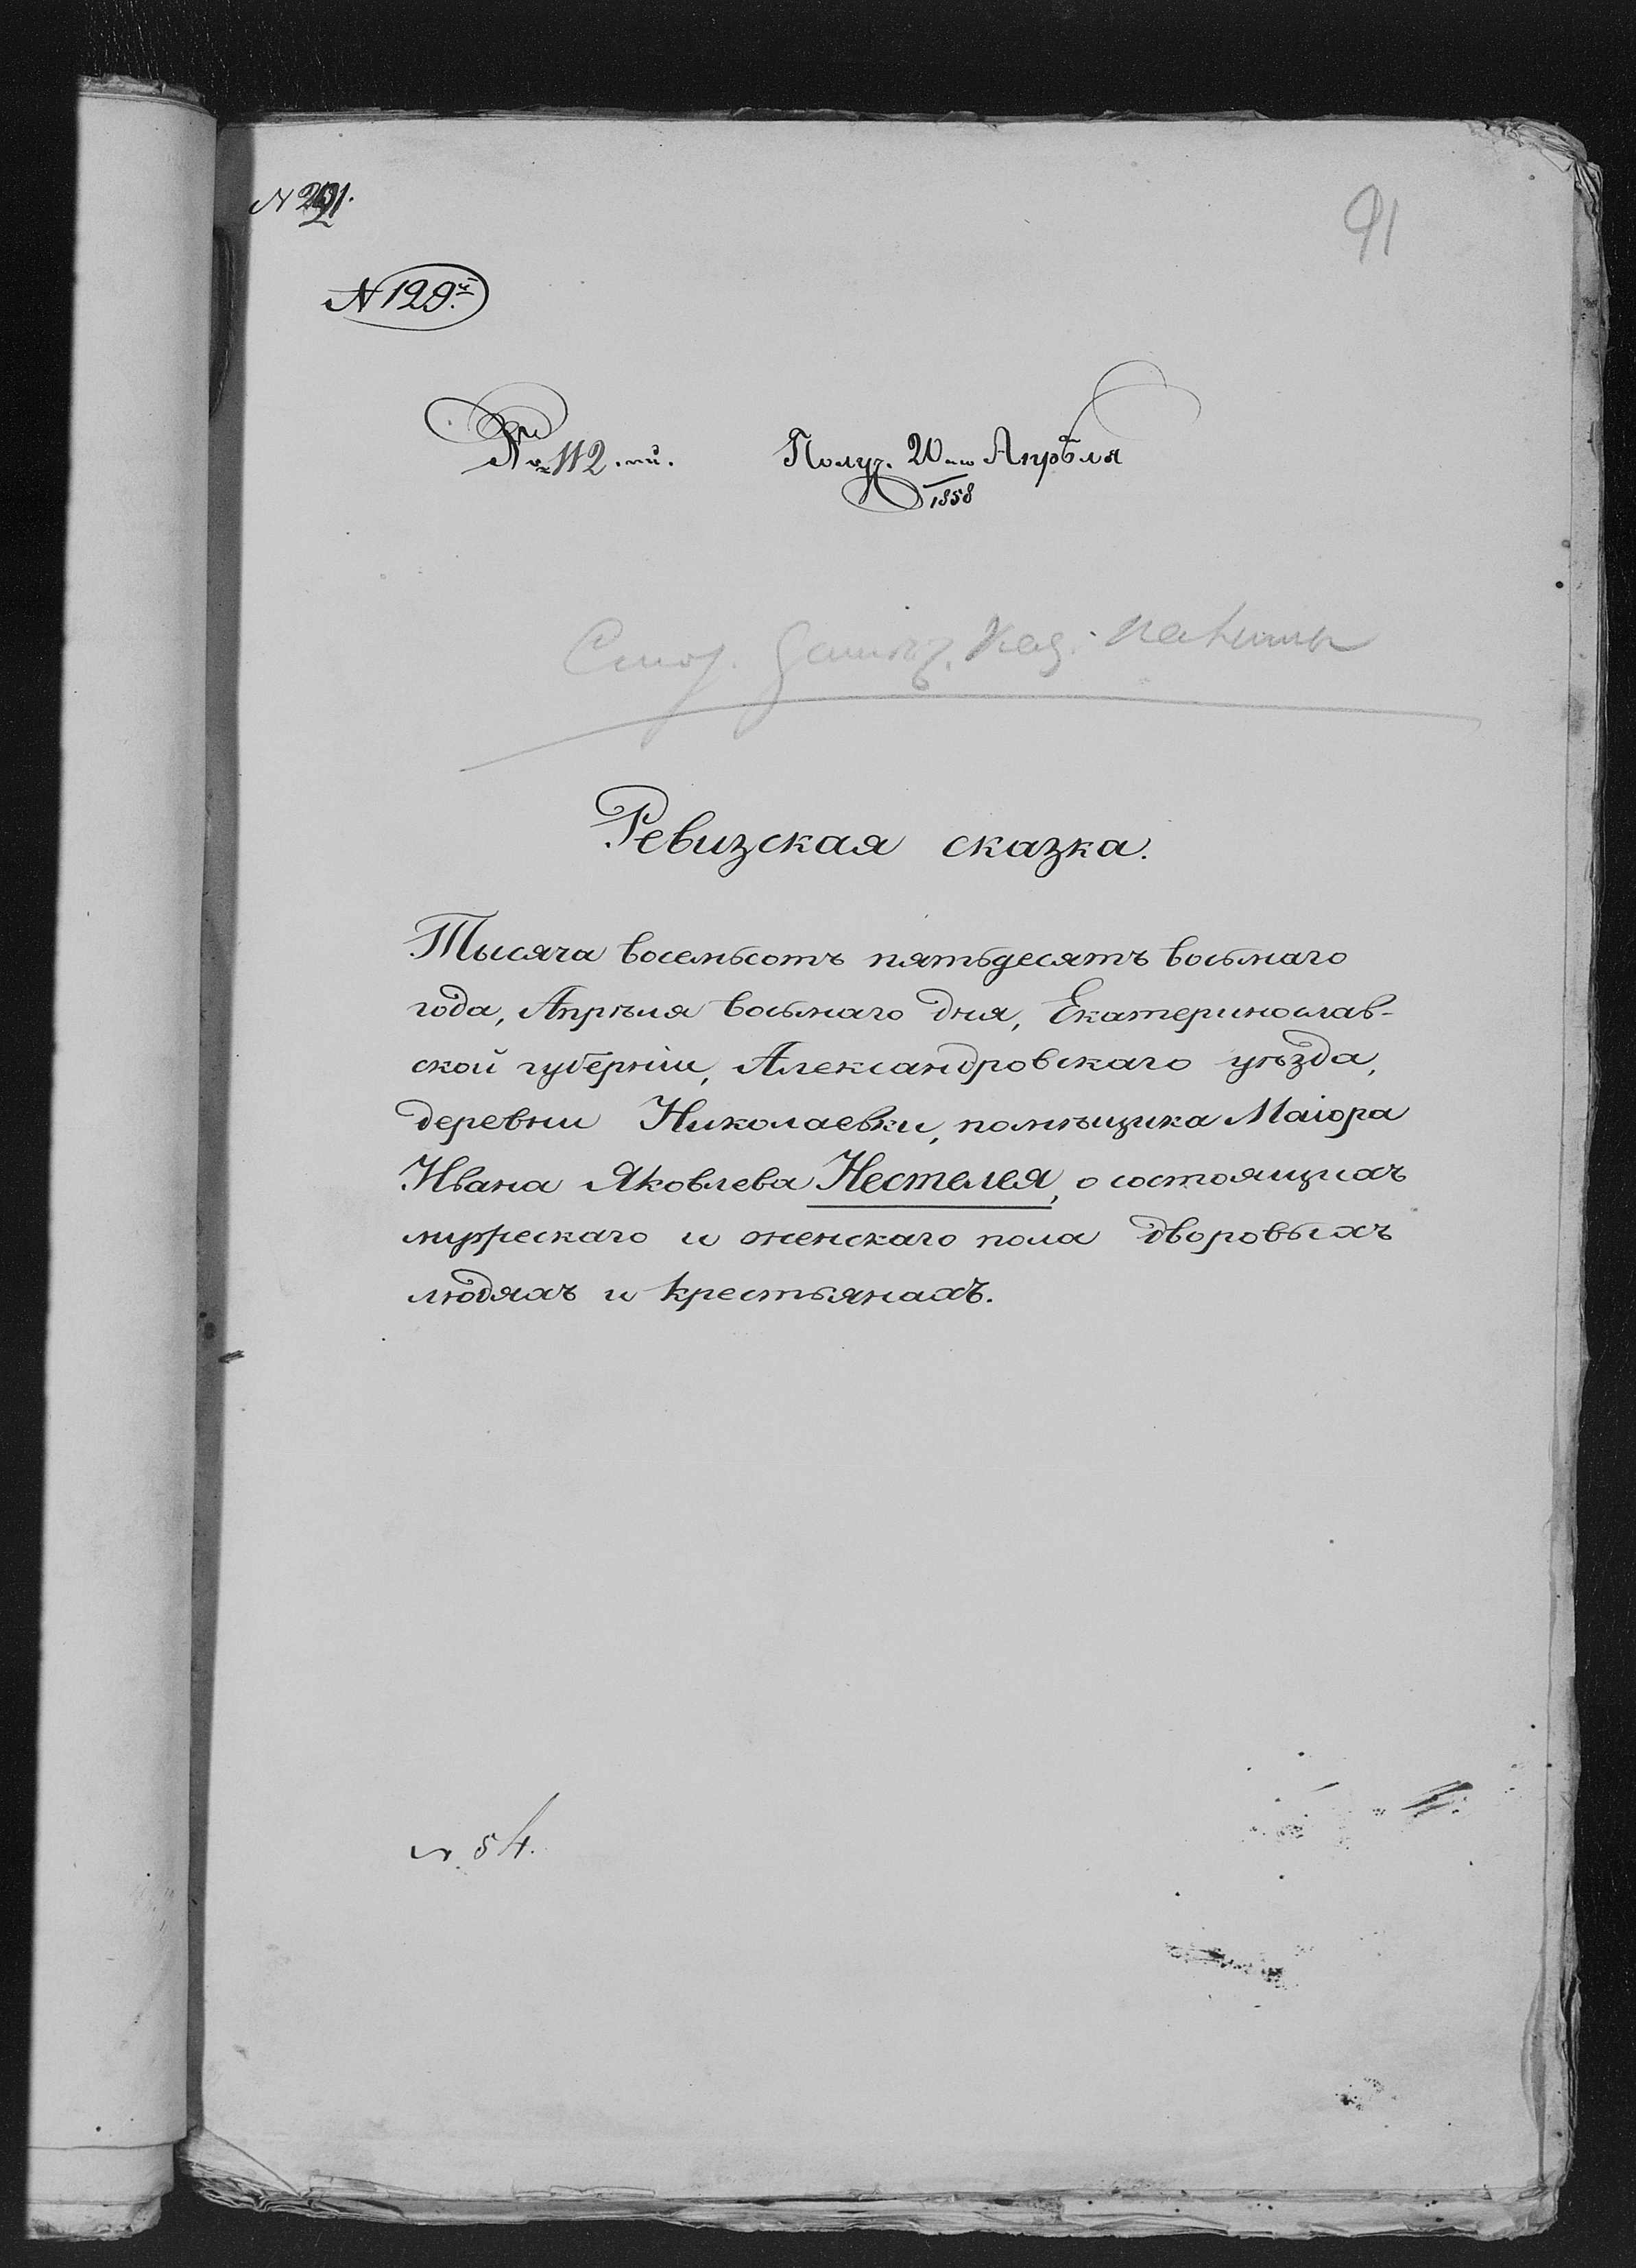 91
N 129й
№ 112.ый. Получ. 20го Апрѣля
1858
Ревизская сказка.
Тысяча восемьсотъ пятьдесятъ восьмаго
года, Апрѣля восьмаго дня, Екатеринослав-
ской губерніи, Александровскаго уѣзда,
деревни Николаевки, помѣщика Маіора
Ивана Яковлева Нестелея, о состоящихъ
мужескаго и женскаго пола дворовыхъ
людяхъ и крестьянахъ.
N. 54.